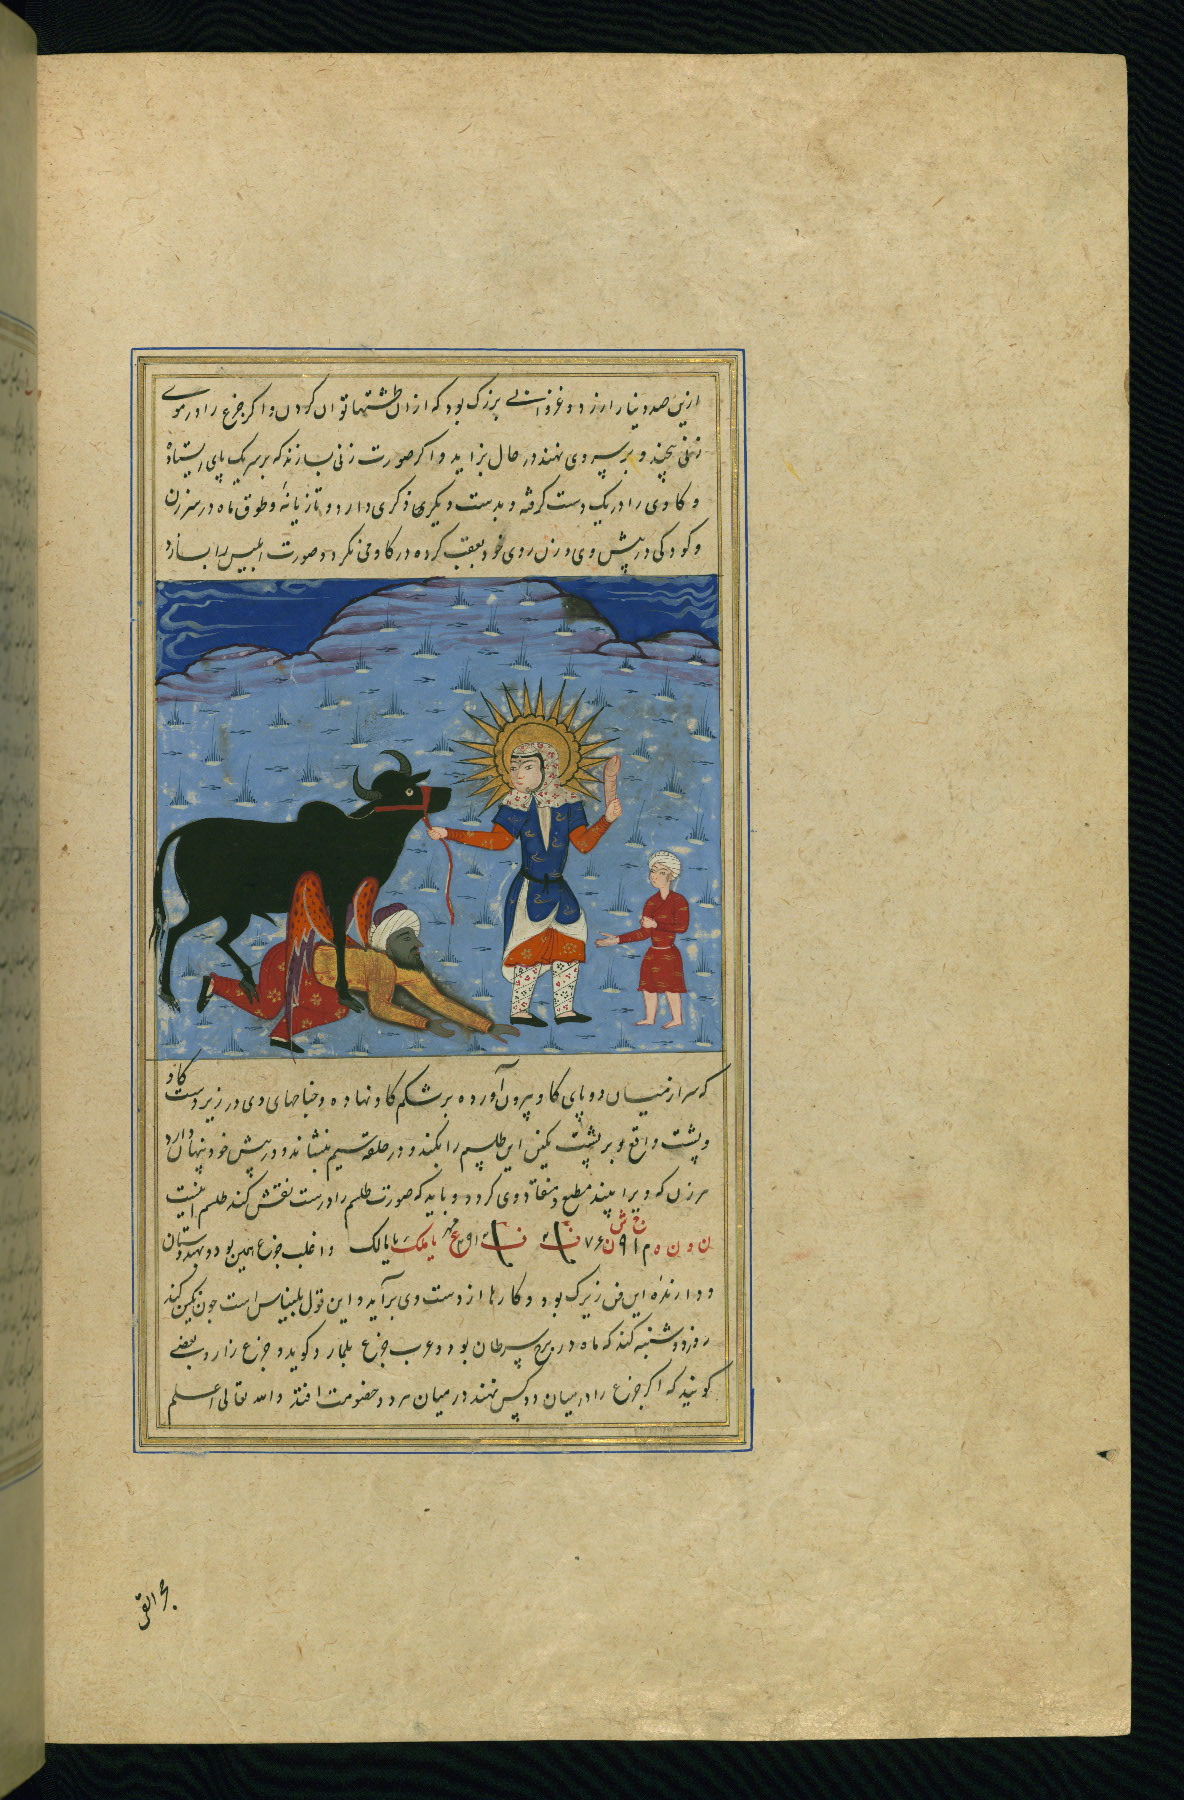 ازین صد دینار ارزد و غروانی بزرک بود که ازان طشتها توان کردن و اکر جزع را در موی
زنی پیچند و بر سر وی نهند در حال بزاید و اکر صورت زنی بسازند که بر سر یک پای ایستاده
و کاوی را در یک دست کرفته و بدست دیکری ذکری دارد و تازیانهٔ و طوق ماه در سر زن
و کودکی در پیش وی و زن روی خود بعقب کرده در کاو می نکرد و صورت ابلیس را بسازد
که سر از میان دو پای کاو بیرون آورده بر شکم کاو نهاده و جناحهای وی در زیر دست کاو
و پشت واقع و بر پشت نکین این طلسم را بکند و در حلقه سیم بنشاند و در پیش خود پنهان دارد
هر زن که ویرا بیند مطیع و منقاد وی کردد و باید که صورت طلسم را درست نقش کند طلسم اینست
ن و ن ه م ۱ ۹ ن ۷۶ یا ملک یا مالک و اغلب جزع بیمن بود و بهندوستان
و دارندهٔ این فن زیرک بود و کارها از دست وی برآید و این قول بلیناس است چون نکین کند
روز دوشنبه کند که ماه در برج سرطان بود و عرب جزع بلماز کوید و جزع زارد بعضی
کویند که اکر جزع را در میان دو کس نهند در میان هر دو خصومت افتد والله تعالی اعلم